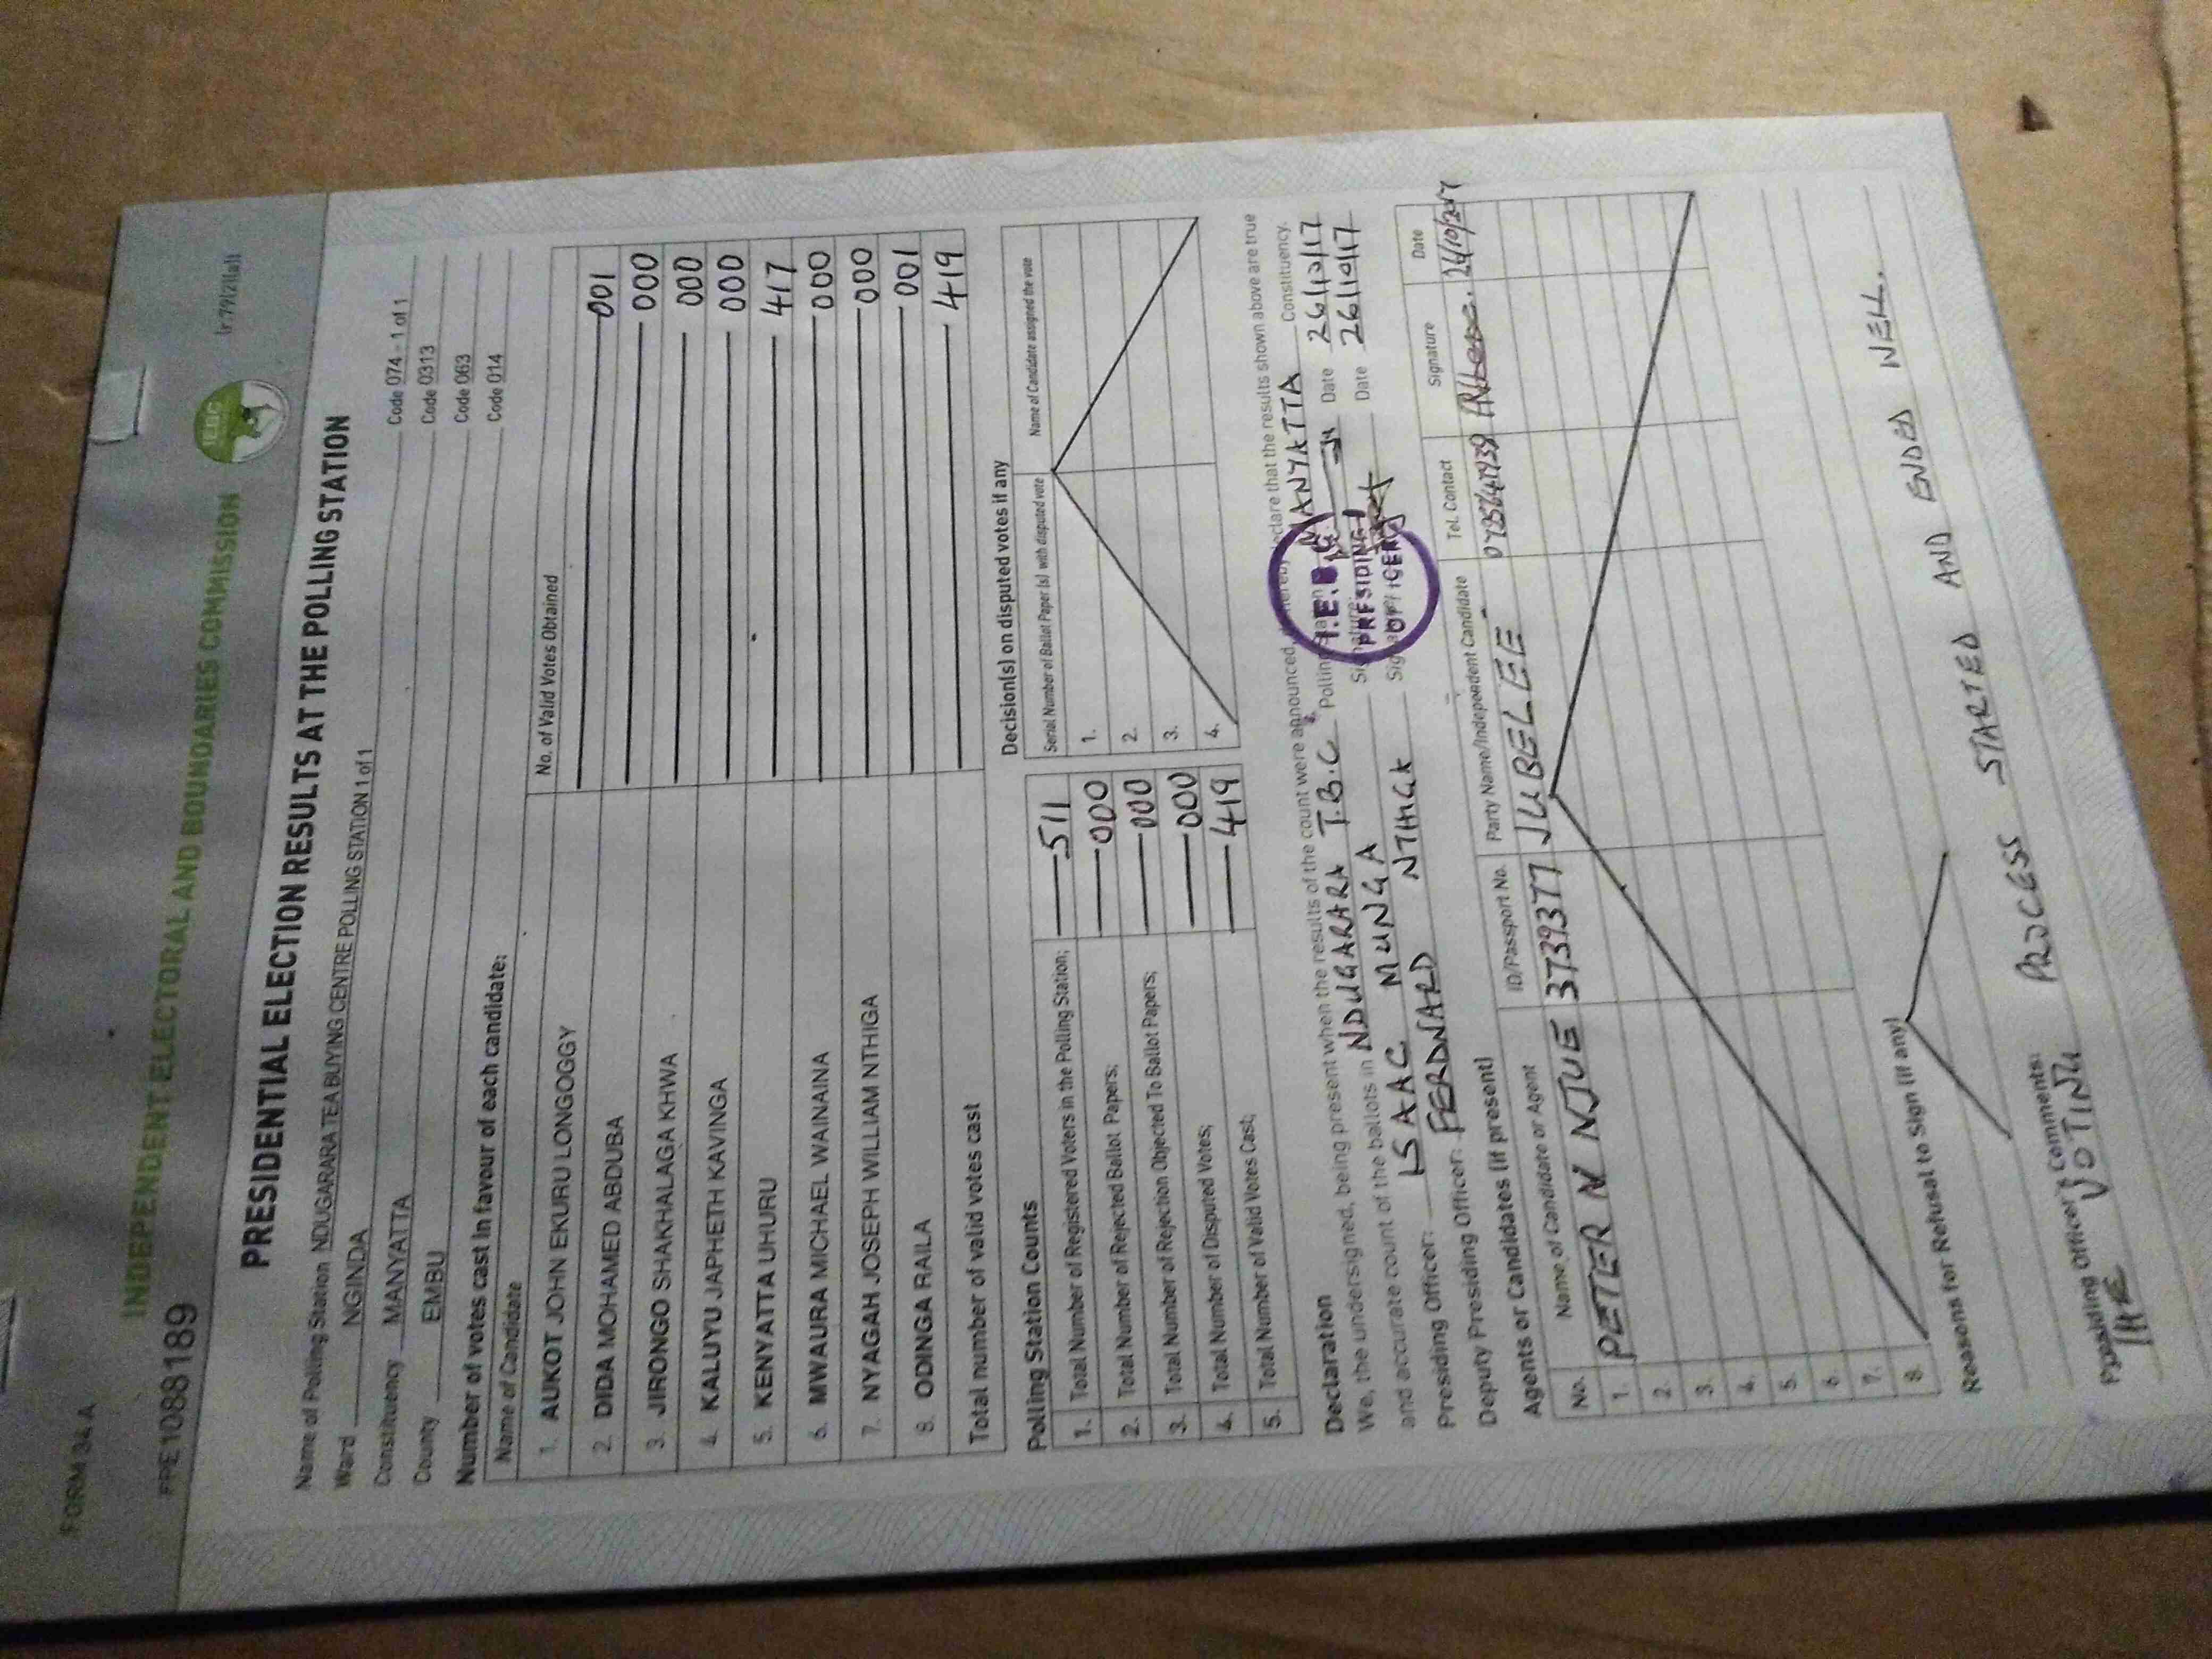 FORM 34 A
(r.79(2)(a))
INDEPENDENT ELECTORAL AND BOUNDARIES COMMISSION
IEBC
PRE1088189
PRESIDENTIAL ELECTION RESULTS AT THE POLLING STATION
Name of Polling Station NDUGARARA TEA BUYING CENTRE POLLING STATION 1 of 1 Code 074 - 1 of 1
Ward NGINDA Code 0313
Constituency MANYATTA Code 063
County EMBU Code 014
Number of votes cast in favour of each candidate:
Name of Candidate No. of Valid Votes Obtained
1. AUKOT JOHN EKURU LONGOGGY 001
2. DIDA MOHAMED ABDUBA 000
3. JIRONGO SHAKHALAGA KHWA 000
4. KALUYU JAPHETH KAVINGA 000
5. KENYATTA UHURU 417
6. MWAURA MICHAEL WAINAINA 000
7. NYAGAH JOSEPH WILLIAM NTHIGA 000
8. ODINGA RAILA 001
Total number of valid votes cast 419
Polling Station Counts
1. Total Number of Registered Voters in the Polling Station; 511
2. Total Number of Rejected Ballot Papers; 000
3. Total Number of Rejection Objected To Ballot Papers; 000
4. Total Number of Disputed Votes; 000
5. Total Number of Valid Votes Cast; 419
Decision(s) on disputed votes if any
Serial Number of Ballot Paper (s) with disputed vote Name of Candidate assigned the vote
1.
2.
3.
4.
Declaration
We, the undersigned, being present when the results of the count were announced, hereby declare that the results shown above are true
and accurate count of the ballots in NDUGARARA T.B.C Polling Station MANYATTA Constituency.
Presiding Officer: ISAAC MUNGA Signature Date 26/10/17
Deputy Presiding Officer: FERDNARD NTHIGA Signature Date 26/10/17
I.E.B.C
PRESIDING
OFFICER
Agents or Candidates (if present)
No. Name of Candidate or Agent ID/Passport No. Party Name/Independent Candidate Tel. Contact Signature Date
1. PETER N NJUE 3739377 JUBELEE 26/10/2017
2.
3.
4.
5.
6.
7.
8.
Reasons for Refusal to Sign (if any)
Presiding Officer's Comments:
THE VOTING PROCESS STARTED AND ENDED WELL.